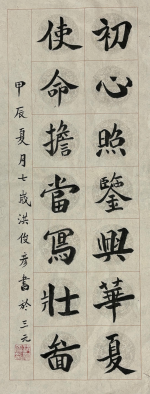 初心照鑒興華夏
使命擔當寫壯圖
甲辰夏月七歲洪俊彥書於三元